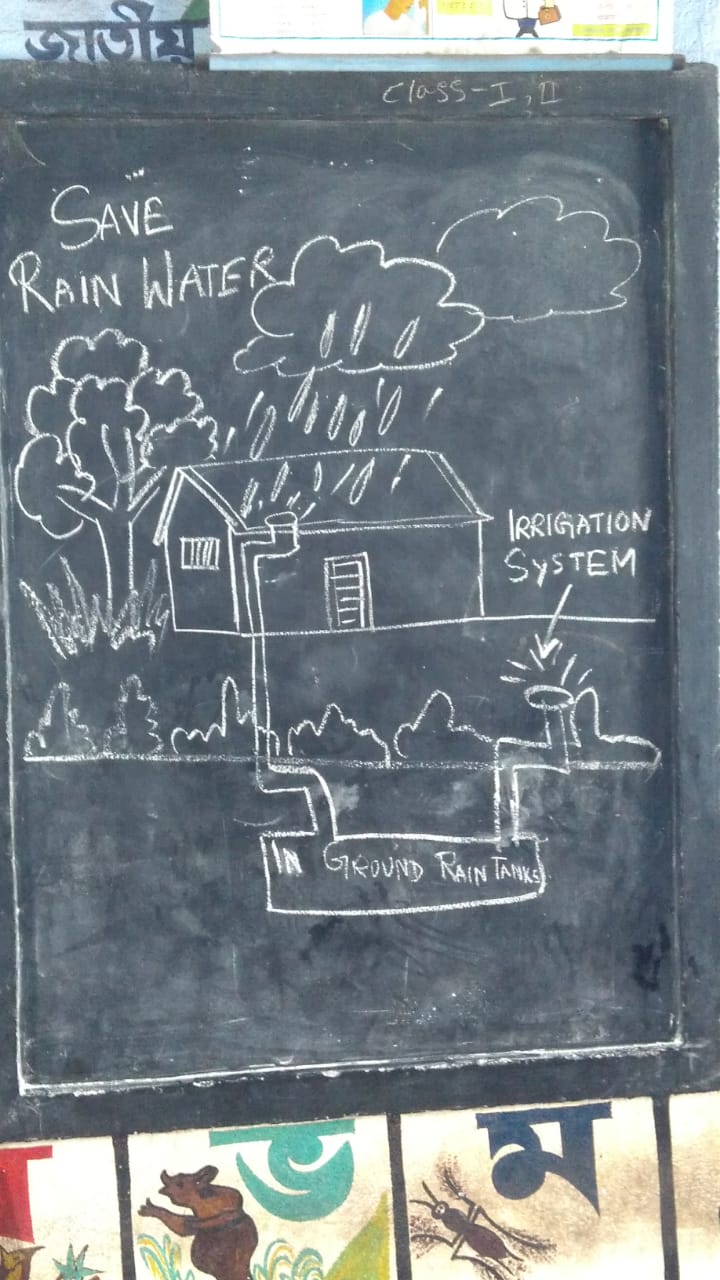 জাতীয়
Class-I, II
SAVE
RAIN WATER
IRRIGATION
SYSTEM
IN GROUND RAIN TANKS
ভ
ম